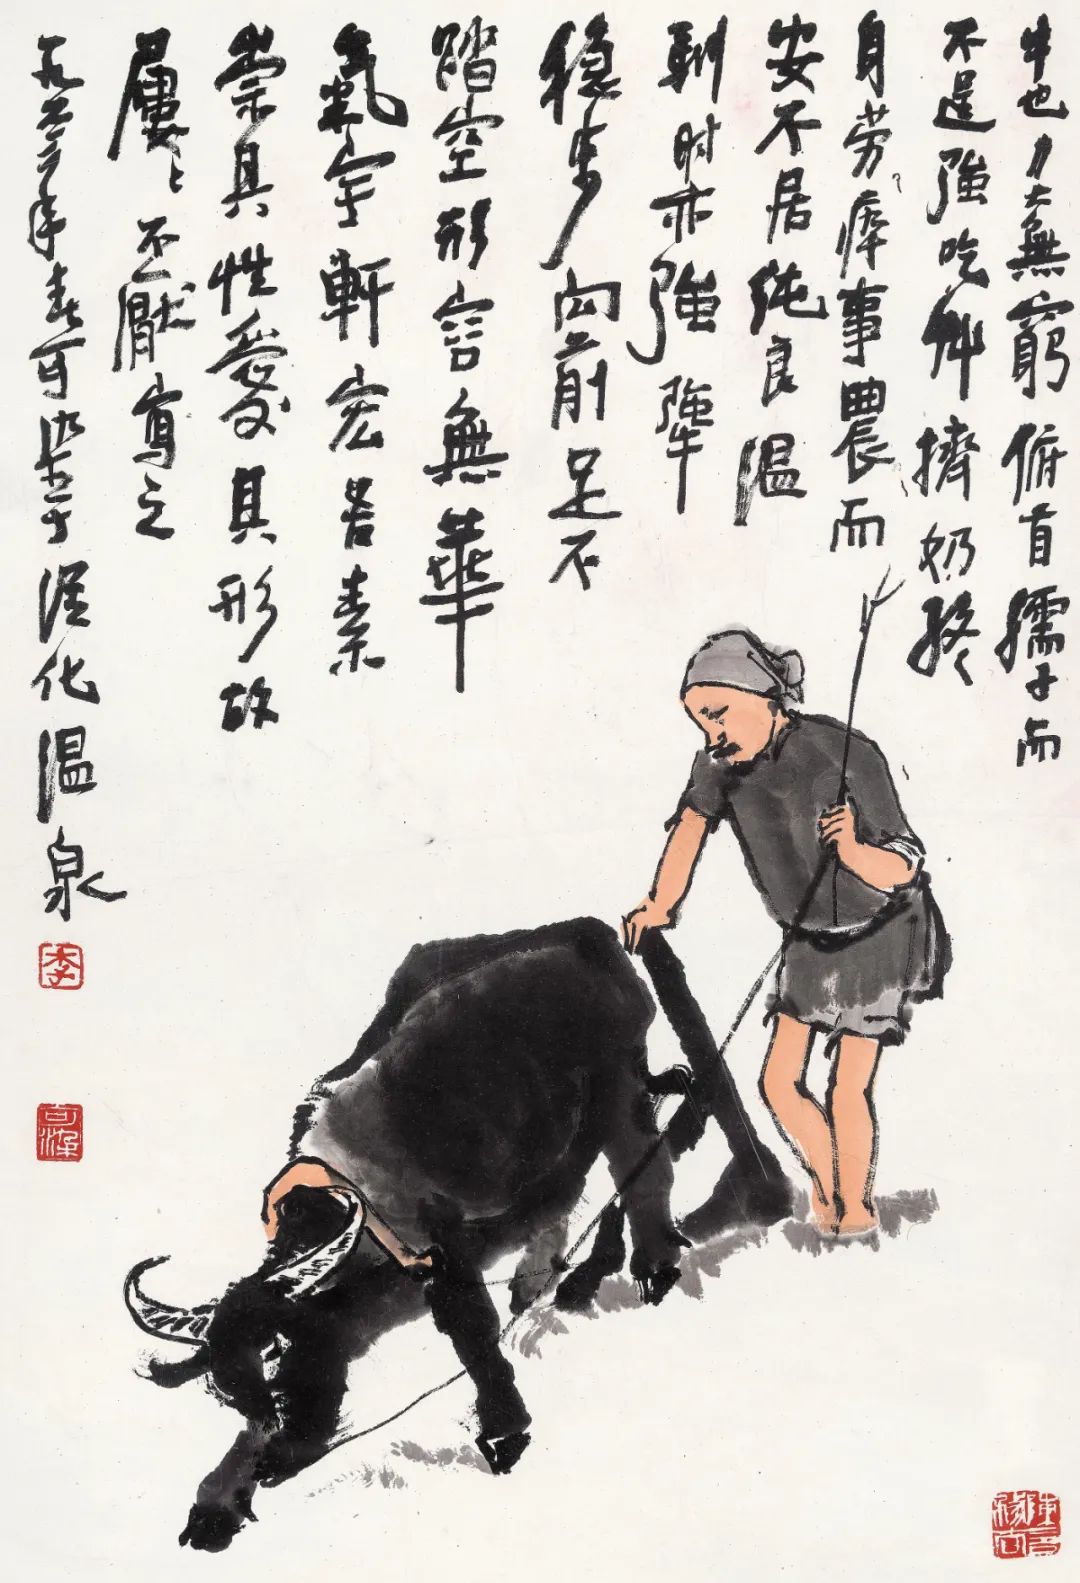 牛也力大無窮俯首孺子而
不逞強吃艸擠奶終
身劳瘁事農而
安不居纯良温
馴时亦強犟
穩步向前足不
踏空形容無華
氣宇軒宏吾素
崇其性愛其形故
屢〻不厭寫之
一九六二年春可染于從化温泉
李
可染